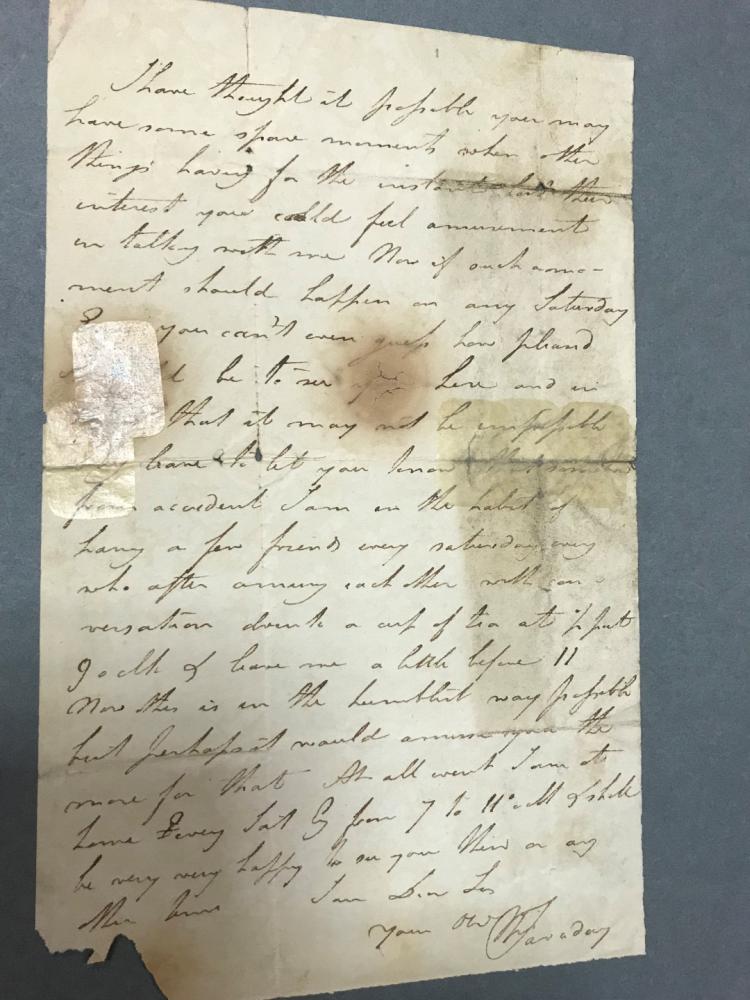 I have thought it possible you may
have some spare moments when other
things having for the instant lost their
interest you could feel amusement
in talking with me Now if such a mo-
ment should happen on any Saturday
you can't even guess how pleased
be to see you here and in
that it may not be impossible
leave to let you know that
from accident I am in the habit of
having a few friends every saturday
who after amusing each other with con-
versation drink a cup of tea at 1/2 past
9 oclk & leave me a little before 11
Now this is in the humblest way possible
but perhaps it would amuse you the
more for that At all event I am at
home every Sat Eg from 7 to 11 oclk & shall
be very very happy to see you then or any
other time I am Dear Sir
your Obd M Faraday